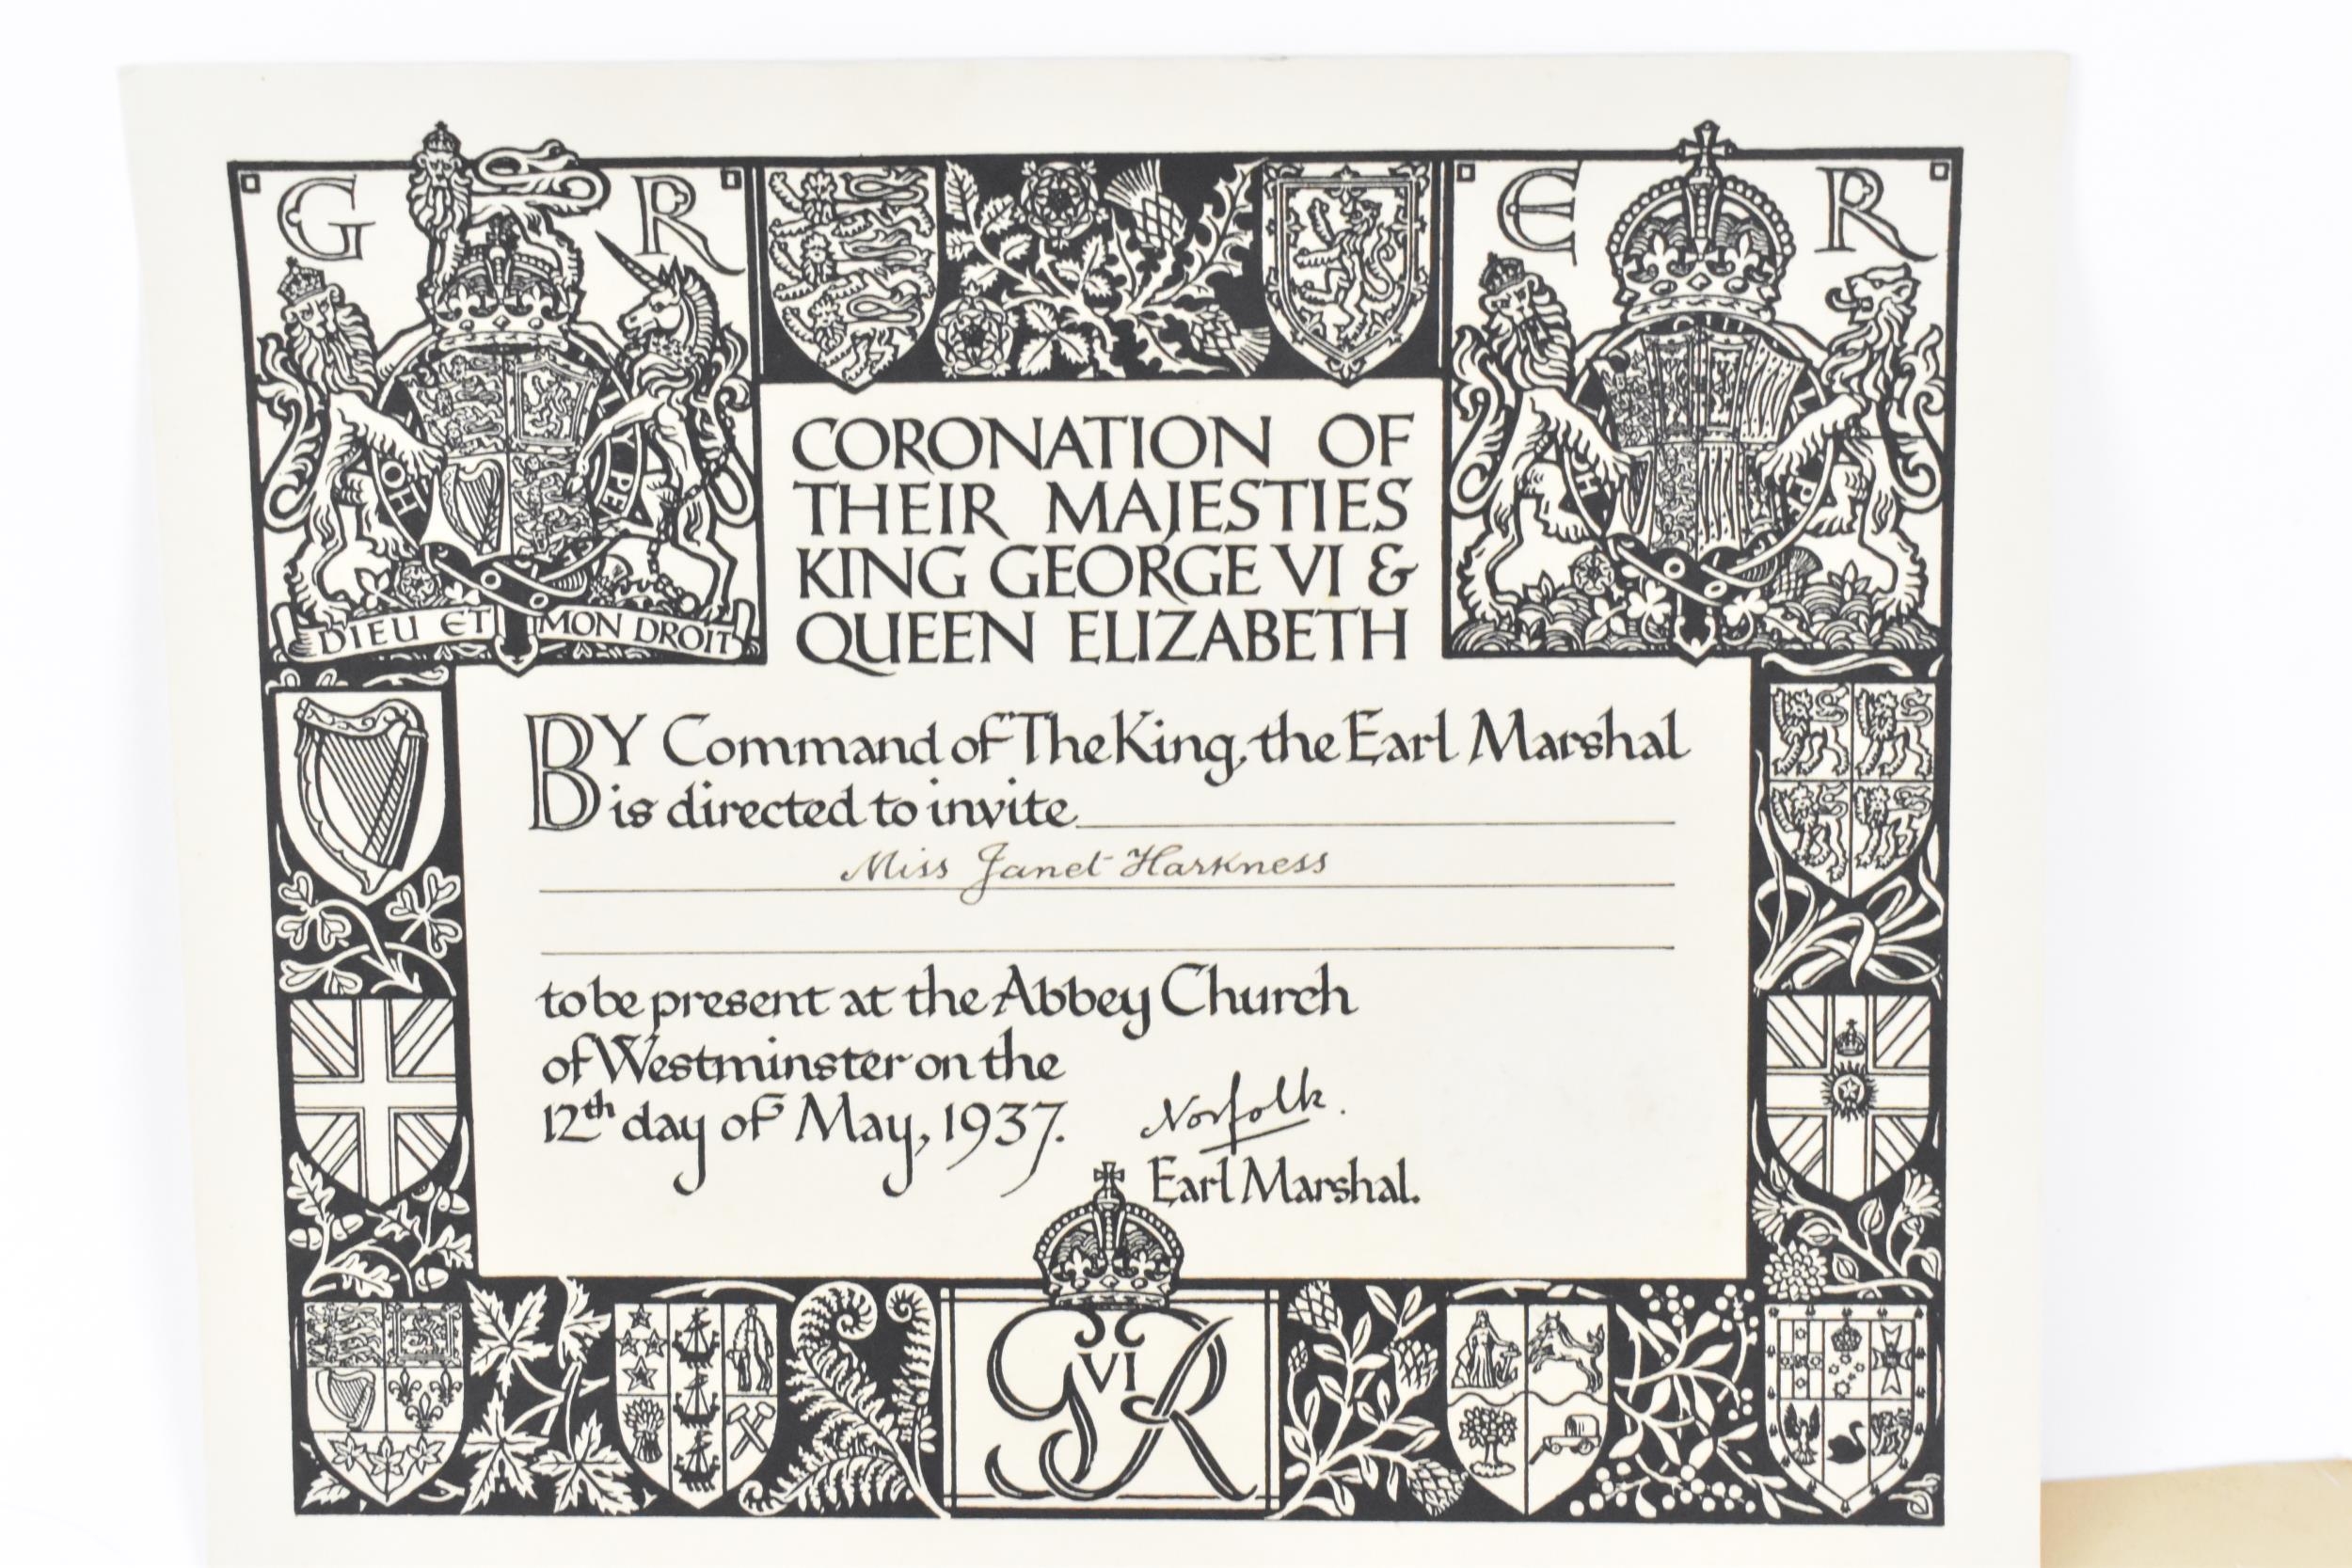 G R
E R
DIEU ET MON DROIT
CORONATION OF
THEIR MAJESTIES
KING GEORGE VI &
QUEEN ELIZABETH
BY Command of The King, the Earl Marshal
is directed to invite
Miss Janet Harkness
to be present at the Abbey Church
of Westminster on the
12th day of May, 1937.
Norfolk.
Earl Marshal.
G VI R